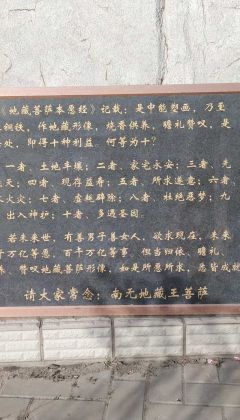 《地藏菩萨本愿经》记载:是中能塑画,乃至
铜铁,作地藏形像,烧香供养,瞻礼赞叹,是
处,即得十种利益 何等为十?
一者、土地丰壤;二者、家宅永安;三者、先
天;四者、现存益寿;五者、所求遂意;六者、
水火灾;七者:虚耗辟除;八者、杜绝恶梦;九
出入神护;十者、多遇圣因。
若未来世,有善男子善女人,欲求现在、未来
千万亿等愿,百千万亿等事 但当归依、瞻礼、
养 赞叹地藏菩萨形像,如是所愿所求,悉皆成就
请大家常念:南无地藏王菩萨